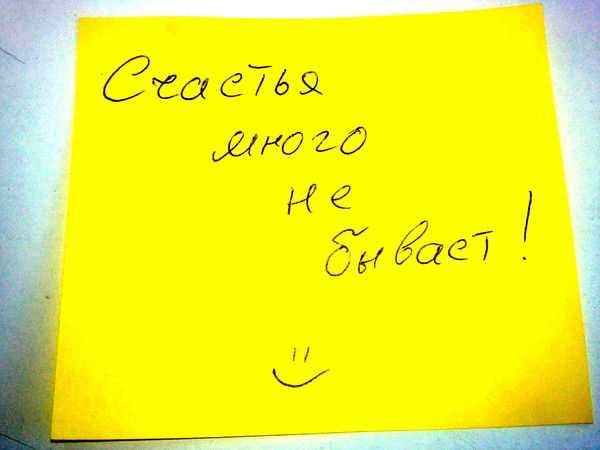 Счастья
много
не
бывает!